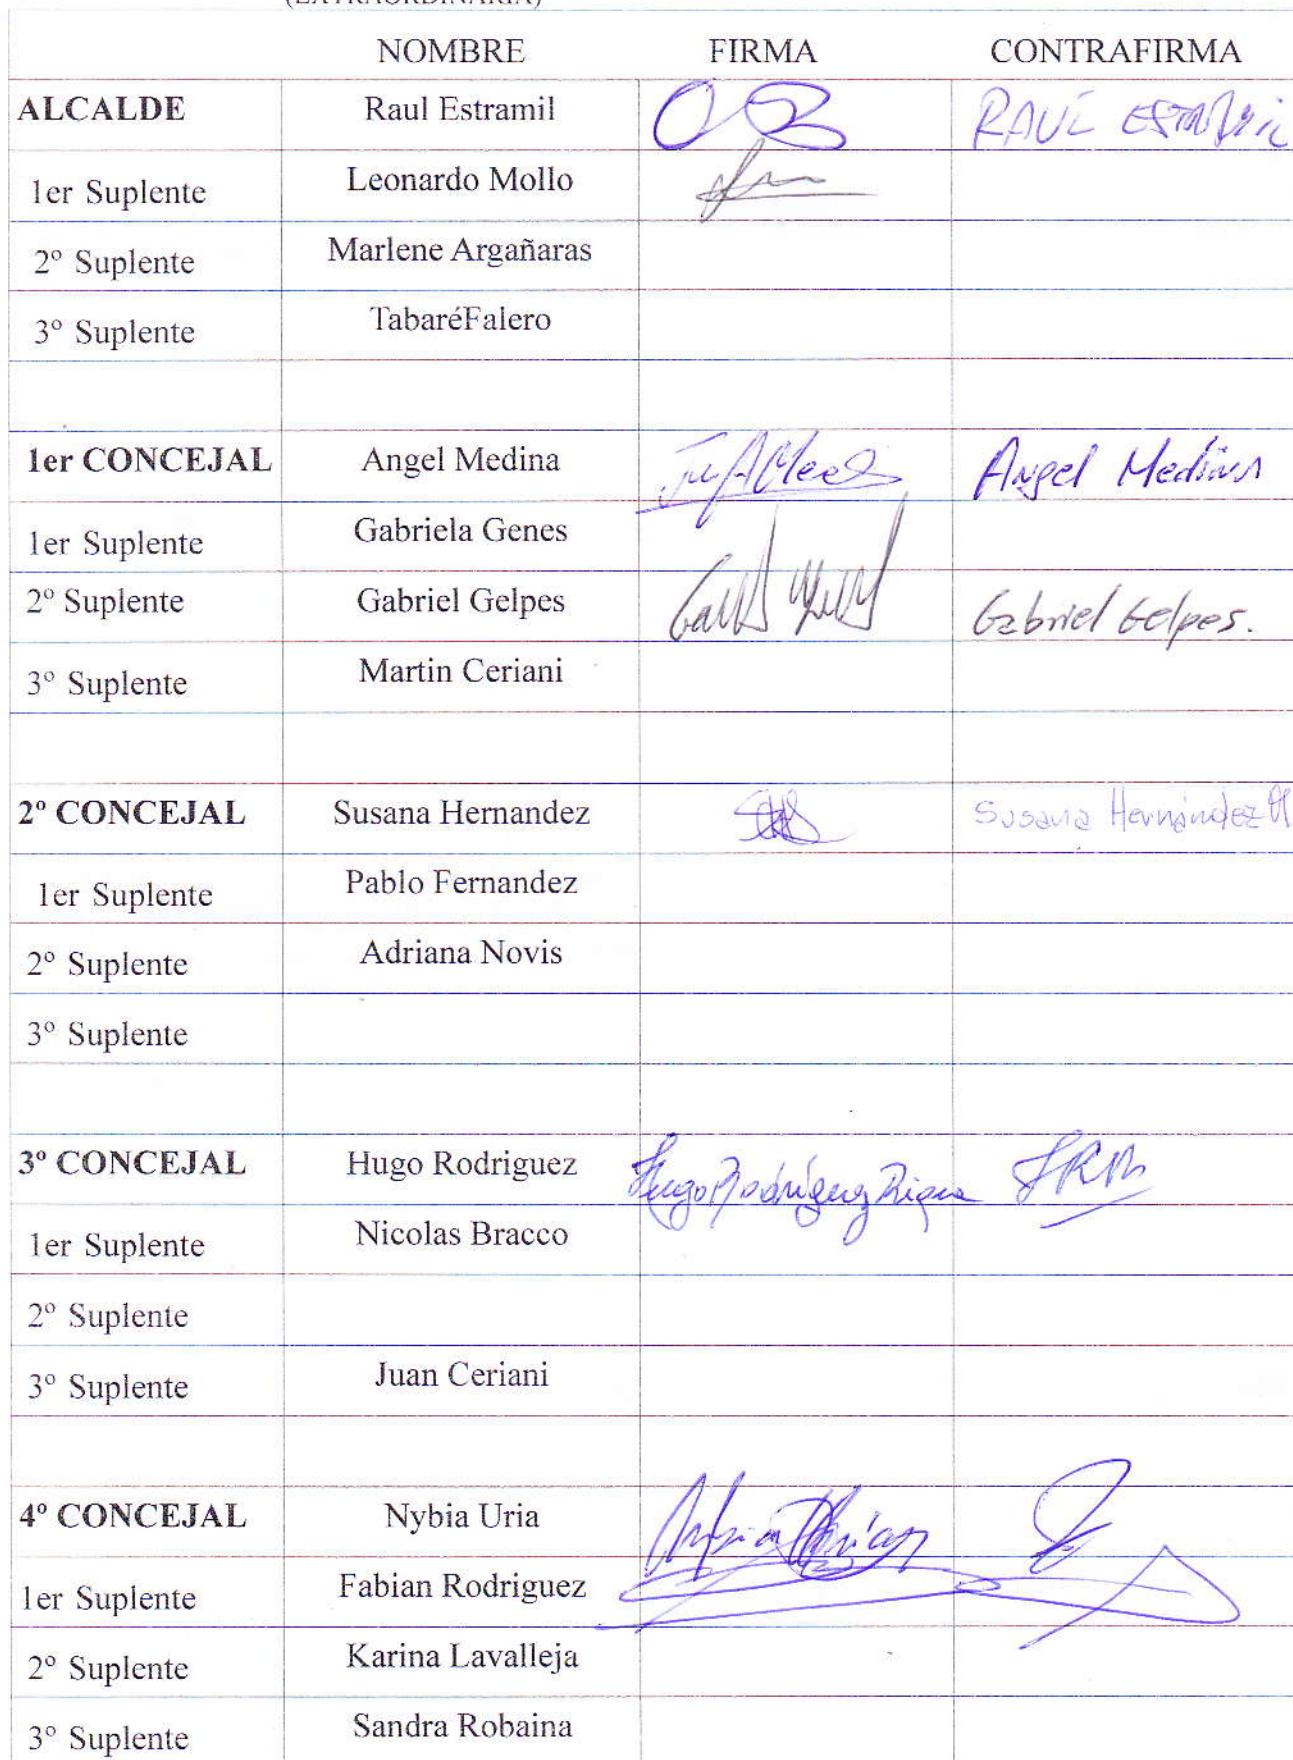 (EXTRAORDINARIA)
NOMBRE FIRMA CONTRAFIRMA
ALCALDE Raul Estramil RAUL ESTRAMIL
1er Suplente Leonardo Mollo
2º Suplente Marlene Argañaras
3º Suplente TabaréFalero
1er CONCEJAL Angel Medina Angel Medina
1er Suplente Gabriela Genes
2º Suplente Gabriel Gelpes Gabriel Gelpes.
3º Suplente Martin Ceriani
2º CONCEJAL Susana Hernandez Susana Hernández
1er Suplente Pablo Fernandez
2º Suplente Adriana Novis
3º Suplente
3º CONCEJAL Hugo Rodriguez Hugo Rodríguez
1er Suplente Nicolas Bracco
2º Suplente
3º Suplente Juan Ceriani
4º CONCEJAL Nybia Uria
1er Suplente Fabian Rodriguez
2º Suplente Karina Lavalleja
3º Suplente Sandra Robaina